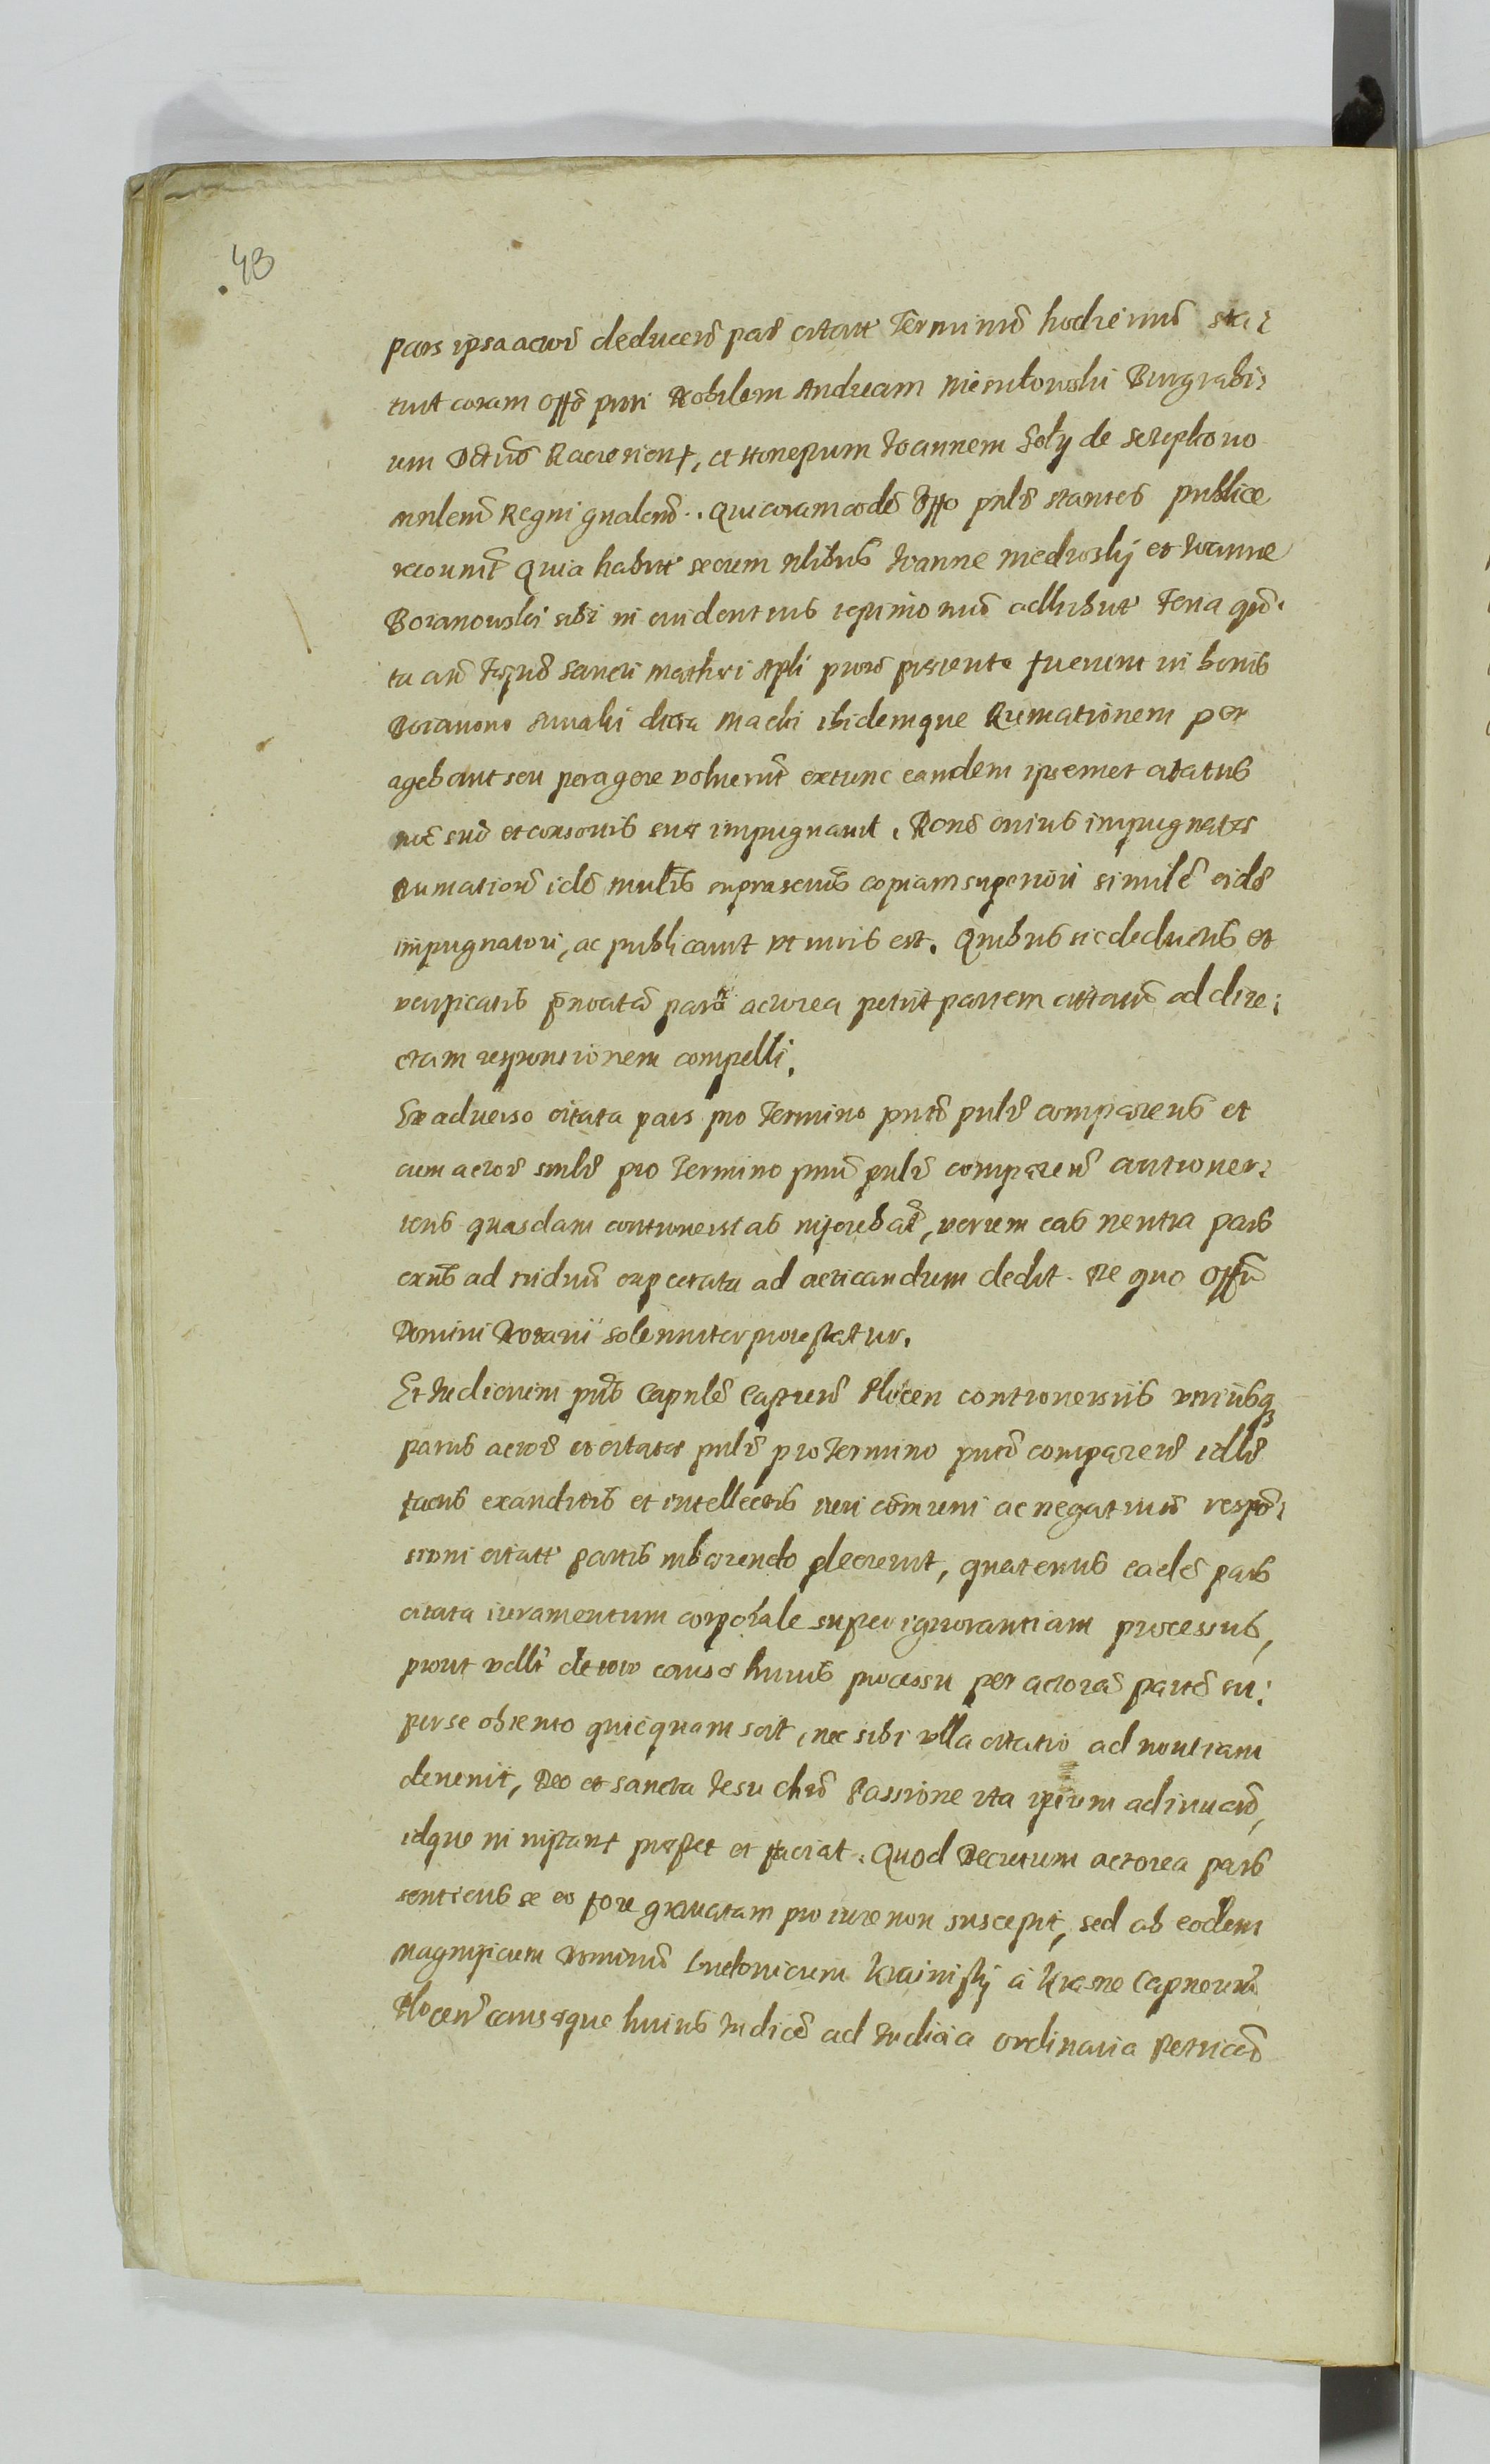 43
pars ipsa actor deducen pars citatæ Terminū hodiernū sta¬
tuit coram Offō pnti Nobilem Andream Mierułowski Burgrabi¬
um Raciąsien, et Honestum Joannem Soły de Szreplowo
mnlem̄ Regni gnalem̄. Qui coram eodē Offo pnlr̄ stantes publice
recounit̄ Quia habitis secum nlibus Joanne Medwski et Joanne
Boranowski sibi in euidentius testimoniū adhibitis Feria quī¬
ta an̄ Festū Sancti Mathei Apli prox̄ preterita fuerunt in bonis
Boranowo Suwalki dicta Machi ibidemque Rumationem per
agebant seu peragere voluerūt extunc eandem ipsemet citatus
noē suō et consortis suæ impugnauit. Ronē cuius impugnatæ
Rumationis idē mnlis suprascriptus copiam superiori similē eidē
impugnatori, ac publicauit vt iuris est. Quibus sic deductis et
verificatis pars actorea petiit partem citatam ad dire¬
ctam responsionem compelli.
Ex aduerso citata pars pro Termino pnti pnlr̄ comparens et
cum actore smlr̄ pro Termino pnti pnlr̄ comparen̄ controuer¬
tens quasdam controuersias inferebat, verum eas neutra pars
exn̄s ad riduū expectata ad acticandum dedit. De quo Offū
Domini Notarii solenniter protestatur.
Et Iudicium pn̄s Capnlē Castren̄ Plocen controuersiis vtriusq
partis actoræ et citatæ pnlr̄ pro Termino pnti comparen̄ idlr̄
factis exauditis et intellectis iuri cōmuni ac negatiuæ respō¬
sioni citatæ partis inhærendo decreuit, quatenus eadē pars
citata iuramentum corporale super ignorantiam processus,
prout velle de toto causæ huius processu per actorā partē su¬
per se obtento quicquam scit, nec sibi vlla citatio ad notitiam
deuenit, Deo et sancta Jesu Chri Passione ita ipsum adiuuan̄,
idque in instanti prestet et faciat. Quod Decretum actorea pars
sentiens se eo fore grauatam pro iure non suscepit, sed ab eodem
Magnificum Dominū Ludouicum Krainski à Krasne Capneum
Plocen causæque huius Iudicē ad Iudicia ordinaria Petricō